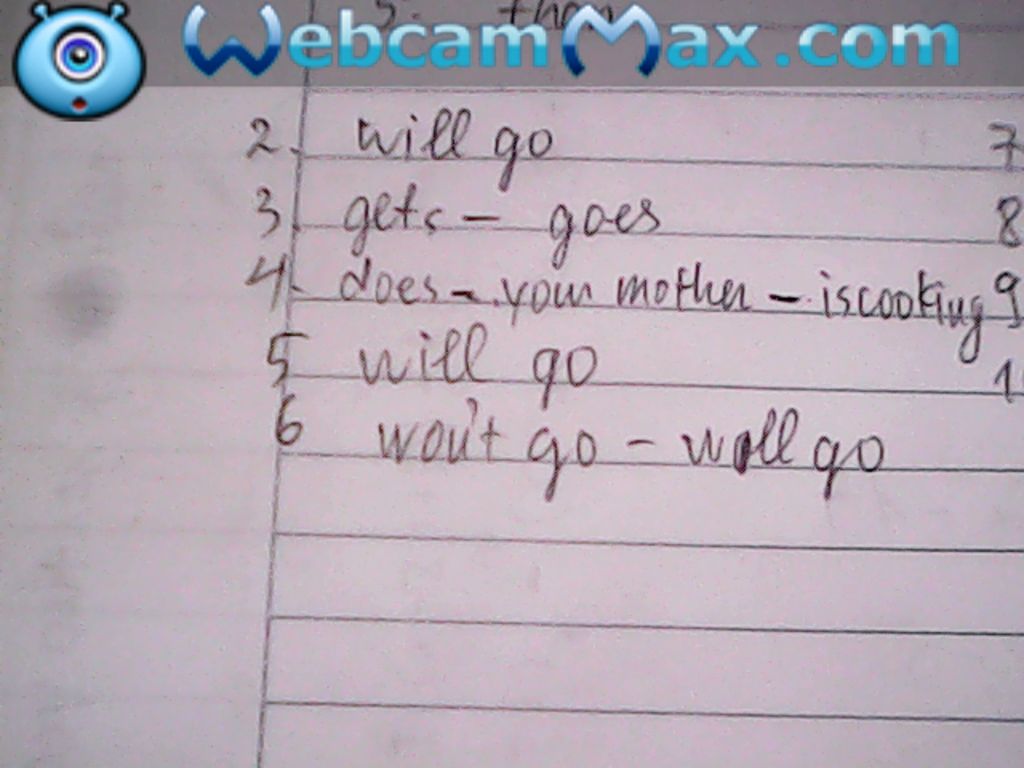 5. than
WebcamMax.com
2. will go 7
3. gets - goes 8
4. does - your mother - is cooking 9
5 will go 1
6 won't go - will go